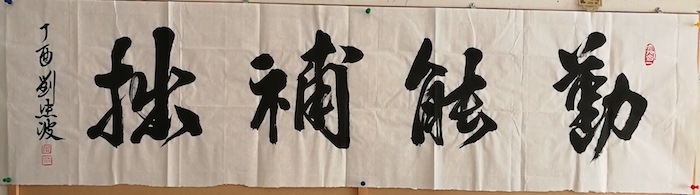 勤能補拙
丁酉劉波